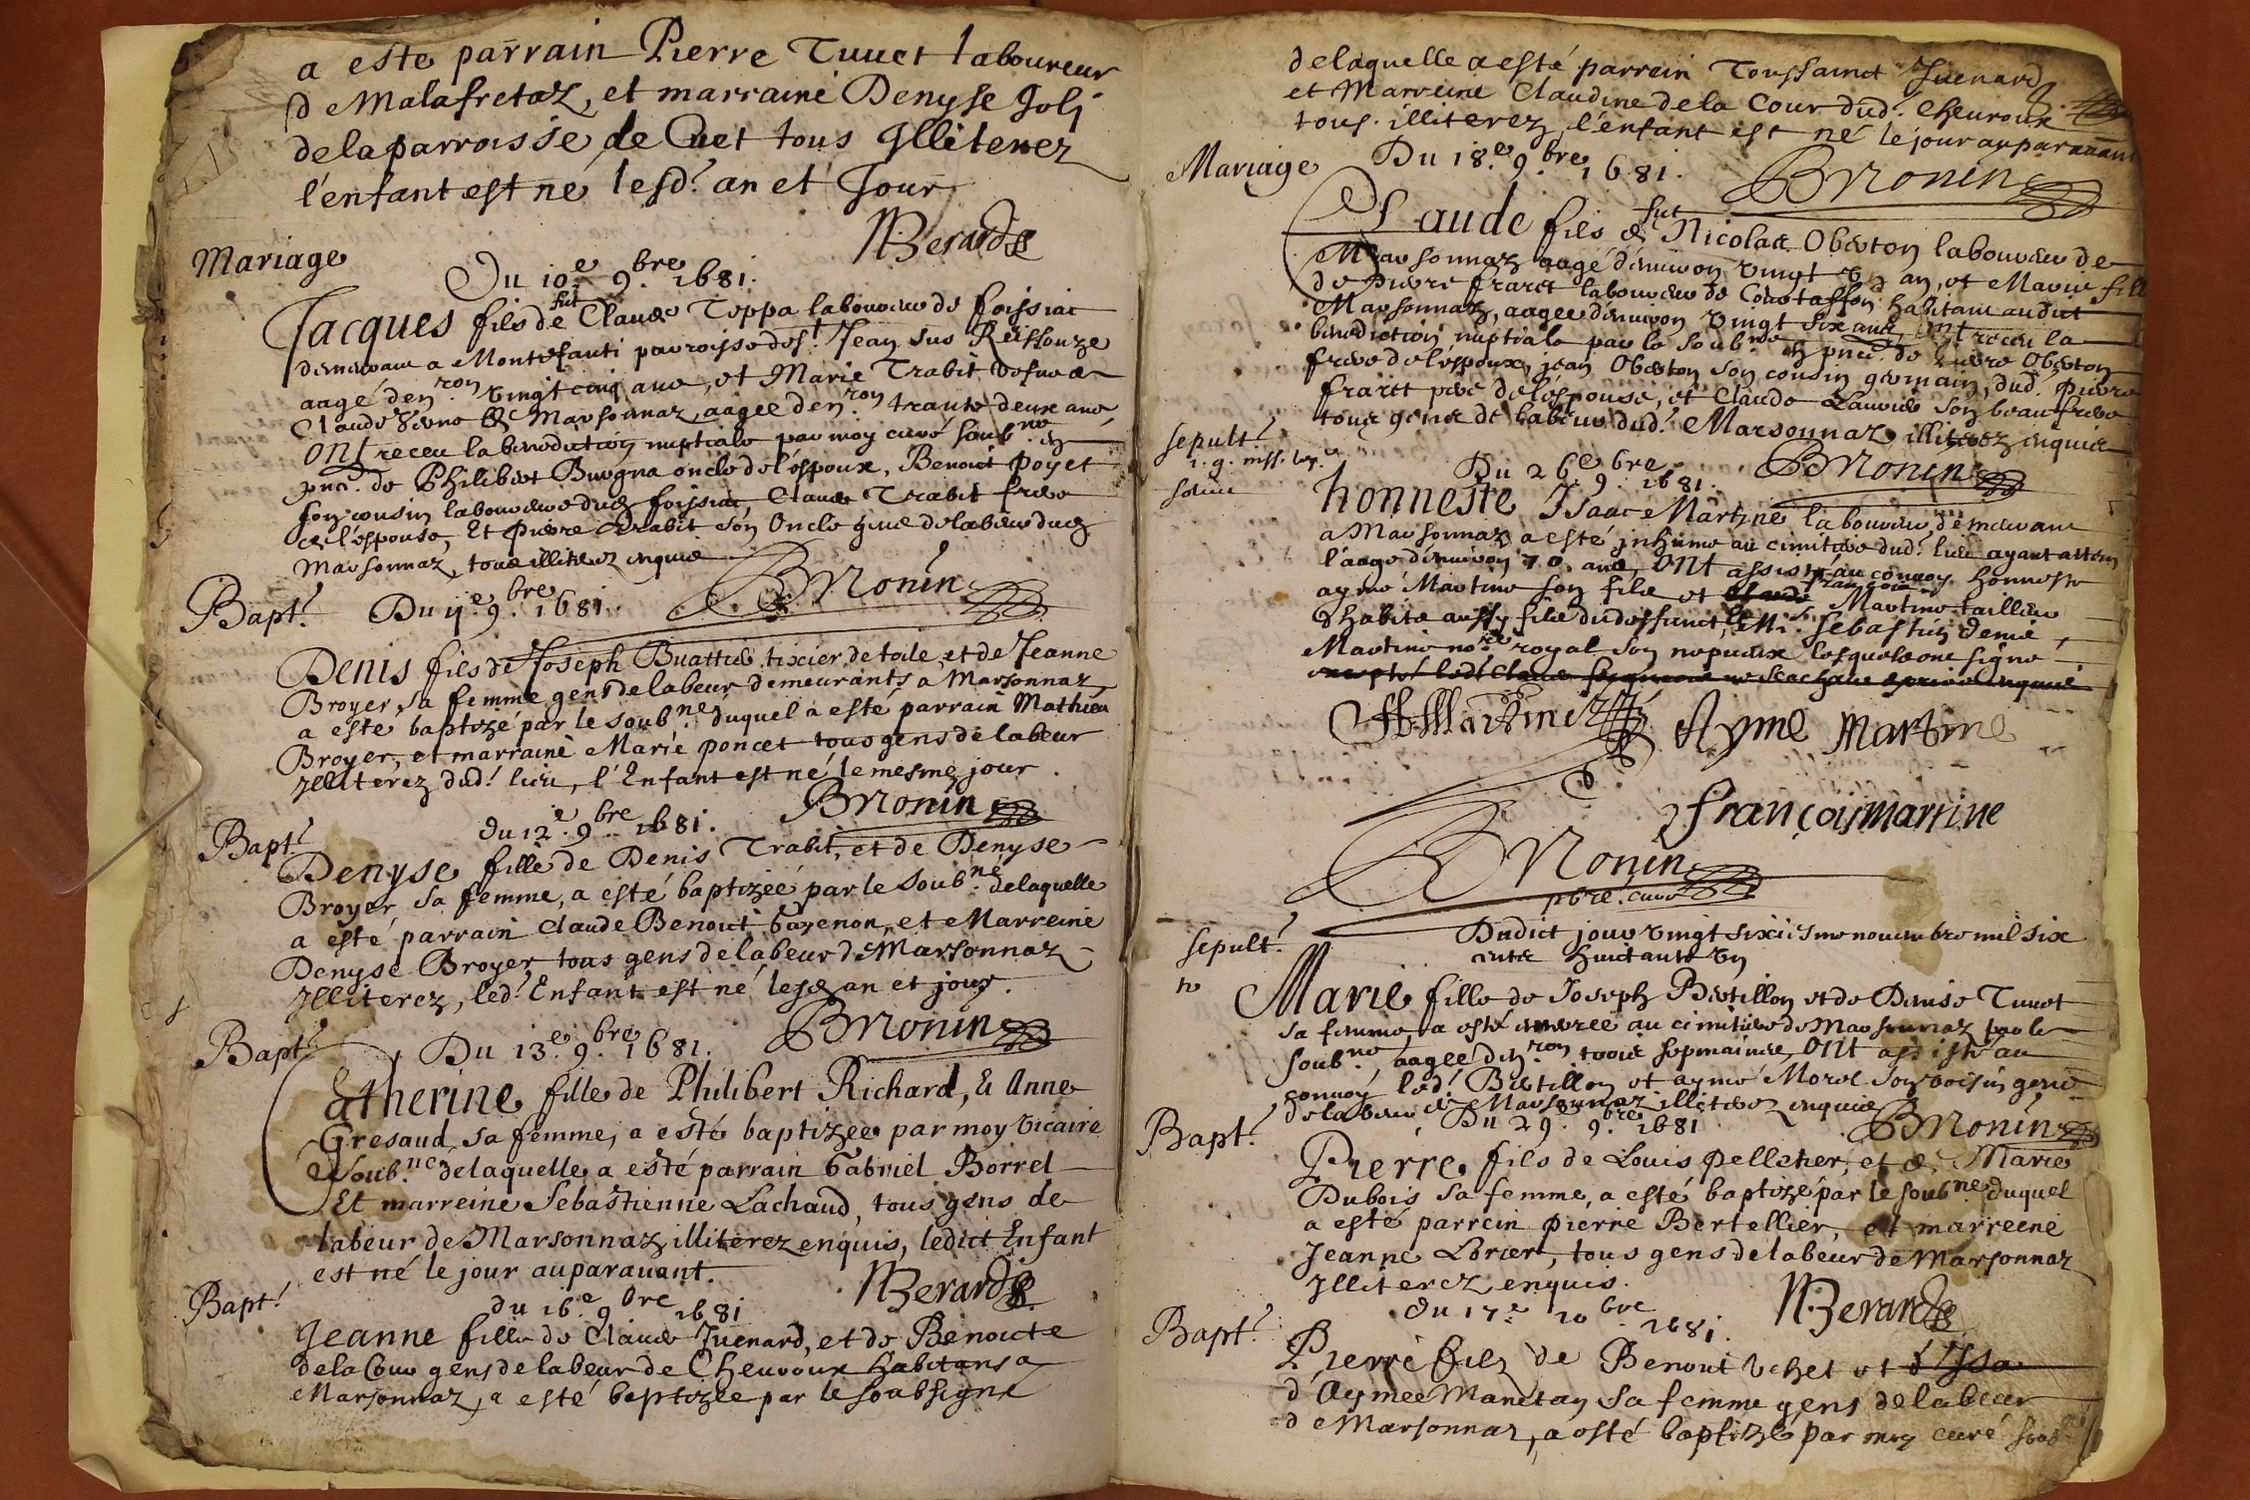 a este parrain Pierre Tuuet laboureur
de Malafretaz, et marraine Denyse Joli
de la parroisse de Cuet tous Illiterez
l'enfant est né lesd.t an et Jour
NBerard
Mariage
Du 10.e 9.bre 1681.
Jacques fils de fut Claude Teppa laboureur de foissiat
demeurant a Montefanti parroisse de s.t Jean sus Reissouze
aagé d'en.ron vingt cinq ans, et Marie Trabit vefue de
Claude de Marsonnaz aagee d'en.ron trante deux ans
ont receu la benediction nuptiale par moy curé soub.né en
pnce. de Philibert Buogna oncle de l'espoux, Benoict Poyet
son cousin laboureurs dud foissiat, Claude Trabit frere
de l'espouse, Et Pierre Trabit son Oncle gens de labeur dud
Marsonnaz, tous illiterez enquis
BMonin
Bapt.t Du 11.e 9.bre 1681.
Denis fils de Joseph Buattie tixier de toile, et de Jeanne
Broyer sa femme gens de labeur demeurants a Marsonnaz
a esté baptizé par le soub.né duquel a esté parrain Mathieu
Broyer, et marraine Marie poncet tous gens de labeur
Illiterez dud.t lieu, l'Enfant est né le mesme jour
BMonin
Bapt.t du 12.e 9.bre 1681.
Denyse fille de Denis Trabit, et de Denyse
Broyer sa femme, a esté baptizeé par le soub.né delaquelle
a esté parrain Claude Benoict Gavenon, et Marreine
Denyse Broyer tous gens de labeur de Marsonnaz
Illiterez, led.t Enfant est né lesd an et jour.
BMonin
Bapt.t Du 13.e 9.bre 1681.
Catherine fille de Philibert Richard, & Anne
Gresaud sa femme, a esté baptizee par moy vicaire
soub.né delaquelle a esté parrain Gabriel Borrel
Et marreine Sebastienne Lachaud, tous gens de
labeur de Marsonnaz illiterez enquis, ledict Enfant
est né le jour auparauant.
NBerard
Bapt.t du 16.e 9.bre 1681
Jeanne fille de Claude Juenard, et de Benoicte
dela Cour gens de labeur de Cheuroux habitans a
Marsonnaz, a esté baptizée par le soubsigné
delaquelle a esté parrein Toussainct Juenard
et Marreine Claudine de la Cour dud.t Cheuroux
tous illiterez, l'enfant est né le jour auparauant
BMonin
Mariage Du 18.e 9.bre 1681.
Claude fils de fut Nicolas Obeston laboureur de
Marsonnaz aagé d'enuiron vingt un an, et Marie fille
de Pierre frarct laboureur de habitant audict
Marsonnaz, aagee d'enuiron vingt six ans, ont receu la
benediction nuptiale par le soub.né en pnce. de Obeston
frere de l'espoux, jean Obeston son cousin germain, dud.t Pierre
frarct pere de l'espouse, et Claude Lauvice son beau frere
tous gens de labeur dud.t Marsonnaz illiterez enquis
BMonin
sepult.t
Du 26.e 9.bre 1681.
honneste Isaac Martine laboureur demeurant
a Marsonnaz a esté inhumé au cimitiere dud.t lieu ayant attein
l'aage d'enuiron 70. ans, ont assisté au conuoy honneste
aymé Martine son fils et françois Martine tailleur
d'habits aussy fils dudeffunct, et M.e Sebastien Denis
Martine no.re royal son nepueux lesquels ont signé
Martine
Aymé Martine
françois martine
BMonin
pbre. curé
sepult.t
Dudict jour vingt sixiesme nouembre mil six
cents huictante un
Marie fille de Joseph Bertillon et de Denise Tuuet
sa femme, a esté enterée au cimitiere de Marsonnaz par le
soub.né, aagée d'en.ron trois sepmaines, ont assisté au
conuoy led.t Bertillon et aymé Morel son voisin gens
de labeur de Marsonnaz illiterez enquis
BMonin
Bapt.t Du 29. 9.bre 1681
Pierre fils de Louis pelletier, et de Marie
Dubois sa femme, a esté baptizé par le soub.né duquel
a esté parrein pierre Bertellier, et marreene
Jeanne Lorier, tous gens de labeur de Marsonnaz
Illiterez enquis.
NBerard
Bapt.t du 17.e 10.bre 1681.
Pierre filz de Benoit Vchet et
d'Aymee Manetay sa femme gens de labeur
de Marsonnaz, a esté baptizé par moy curé